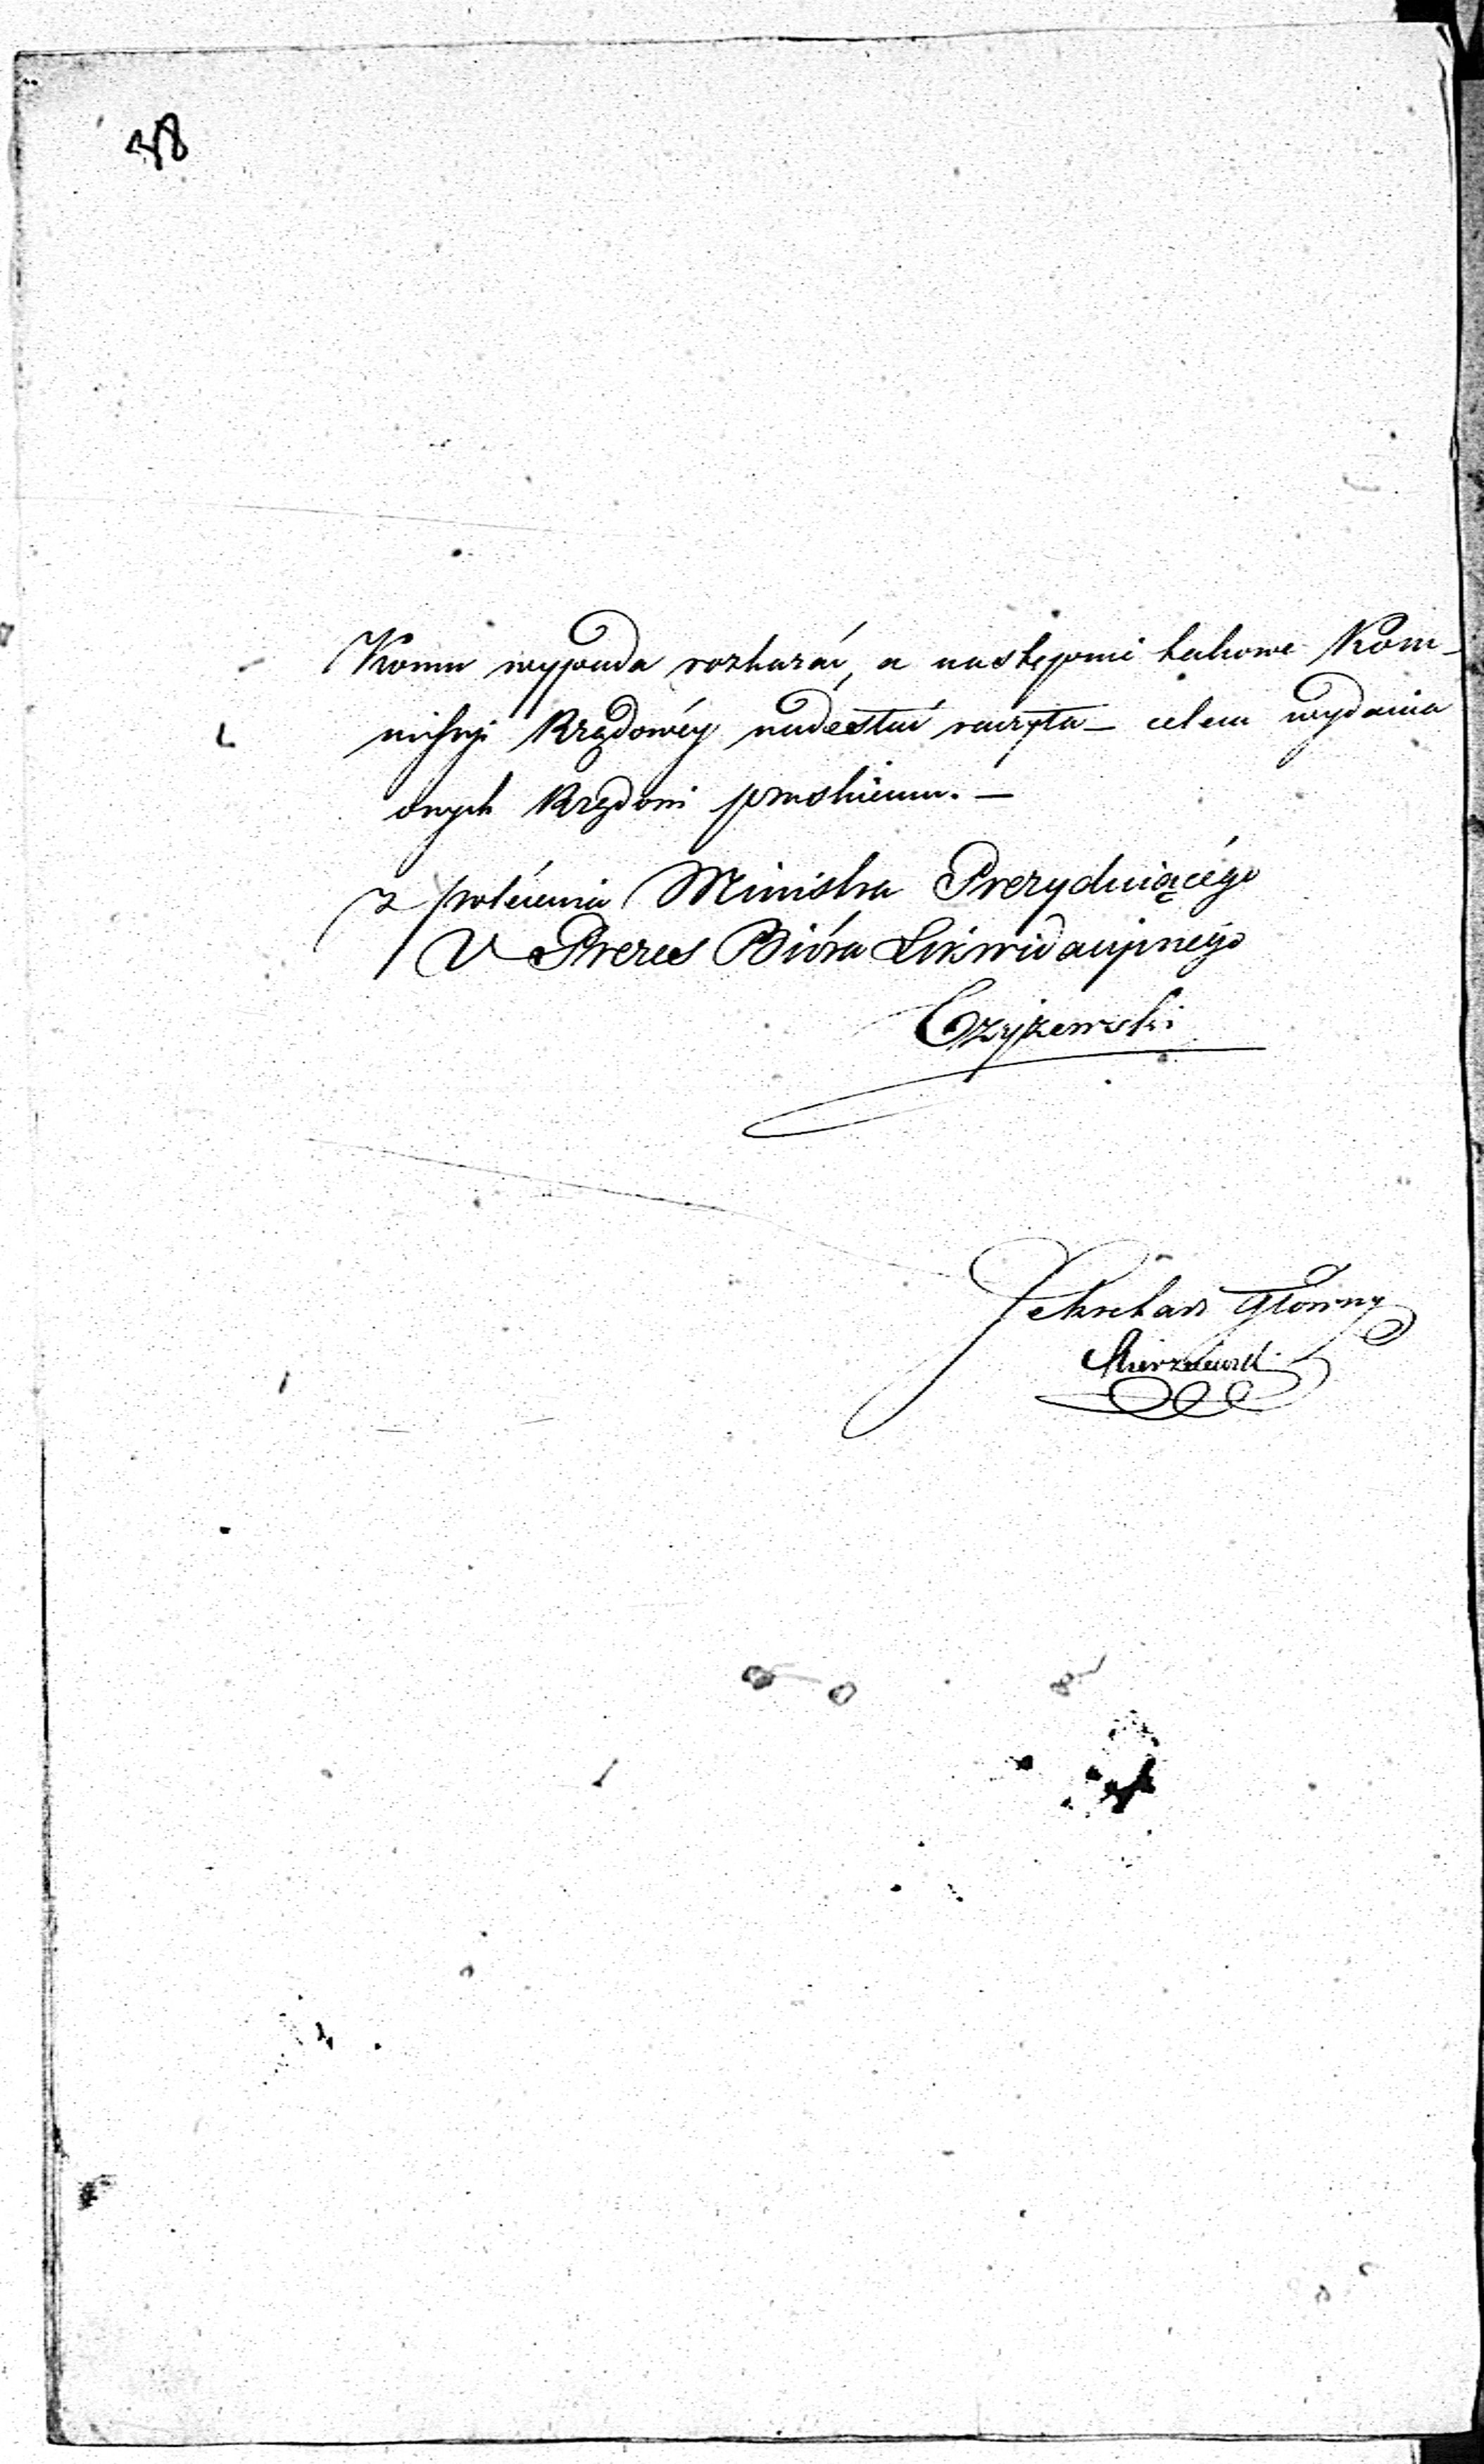 38
Komu wypada rozkazać, a następnie takowe Kom-
missyi Rządowéy nadesłać raczyła – celem wydania
onych Rządowi pruskiemu. –
z polécenia Ministra Prezyduiącégo
V Prezes Bióra Likwidacyjnego
Czyżewski
Sekretarz Główny